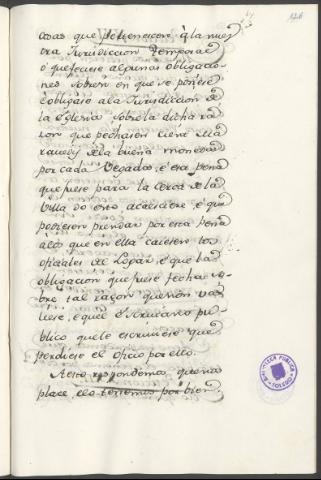 126
cosas que pertenesiere à la nues
tra Jurisdiccion temporal
ó que feciese algunas obligacio
nes sobre en que se posiese
è obligase ala Jurisdiccion de
la Eglesia sobre la dicha ra
zon que pechasen ciento mrs
de la buena moneda
por cada vegada, è esta pena
que fuese para la cerca de la
Villa do esto acaesciere, è que
podiesen prendar por esta pena
álos que en ella caiesen los
oficiales del Logar, è que la
obligacion que fuese fecha so
bre tal razon que non va
liese, è que el escrivano pu
blico que le escriviese que
perdiese el oficio por ello.
A esto respondemos que nos
place, è lo tenemos por bien.
BIBLIOTECA PUBLICA
TOLEDO